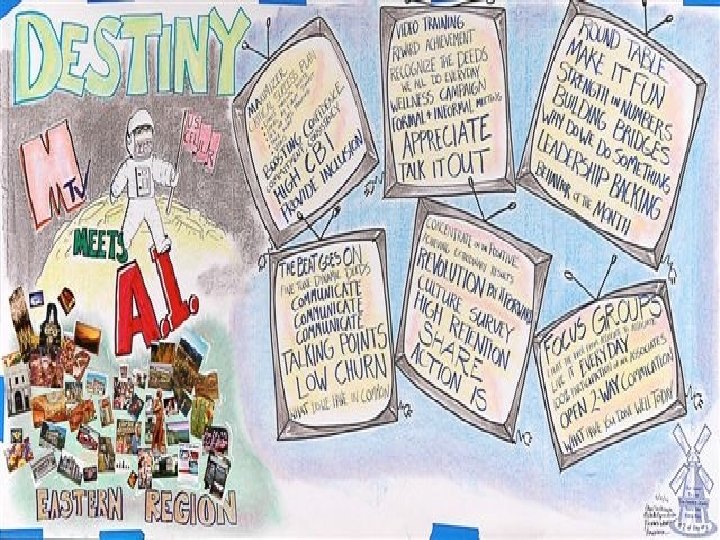 DESTINY
MTV
MEETS
A.I.
EASTERN REGION
BOOSTING CONFIDENCE
HIGH CBI
PROVIDE INCLUSION
VIDEO TRAINING
REWARD ACHIEVEMENT
RECOGNIZE THE DEEDS
WE ALL DO EVERYDAY
WELLNESS CAMPAIGN
FORMAL + INFORMAL MEETING
APPRECIATE
TALK IT OUT
ROUND TABLE
MAKE IT FUN
STRENGTH IN NUMBERS
BUILDING BRIDGES
WHY DO WE DO SOMETHING
LEADERSHIP BACKING
BEHAVIOR OF THE MONTH
THE BEAT GOES ON
FINE TUNE DYNAMIC
COMMUNICATE
COMMUNICATE
COMMUNICATE
TALKING POINTS
LOW CHURN
WHAT YOU'VE HAVE IN COMMON
CONCENTRATE ON THE POSITIVE
EXTRAORDINARY RESULTS
REVOLUTION
CULTURE SURVEY
HIGH RETENTION
SHARE
ACTION IS
FOCUS GROUPS
LIVE IT EVERYDAY
100% PARTICIPATION ASSOCIATES
OPEN 2-WAY COMMUNICATION
WHAT HAVE YOU DONE WELL TODAY